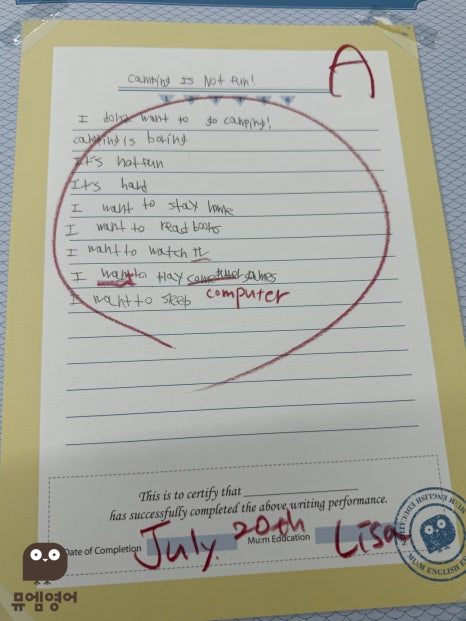 camping Is Not fun!
A
1 2 3 4 5 6
I don't want to go camping!
camping is boring
It's not fun
It's hard
I want to stay home
I want to read books
I want to watch TV
I want to play games
computer
I want to sleep
This is to certify that
has successfully completed the above writing performance.
Date of Completion July. 20th Mu:m Education Lisa
MUM ENGLISH
뮤엠영어